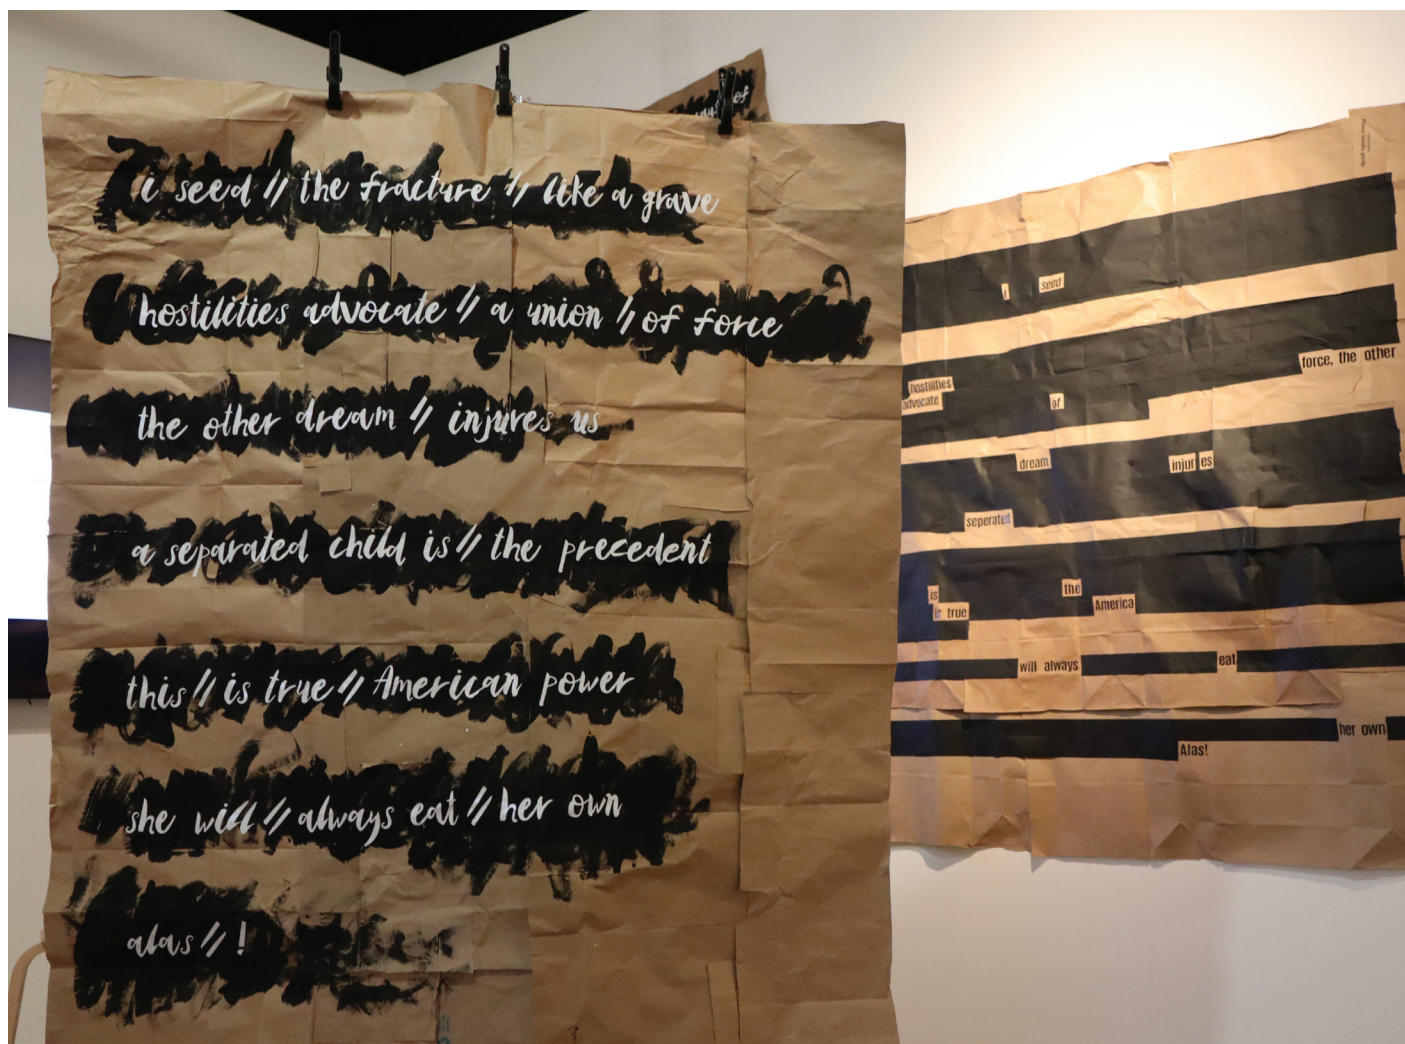 i seed // the fracture // like a grave
hostilities advocate // a union // of force
the other dream // injures us
a separated child is // the precedent
this // is true // American power
she will // always eat // her own
alas // !
of
Please handle gently
i seed
force, the other
hostilities
advocate of
dream injur es
seperated
is the
is true America
will always eat
her own
Alas!